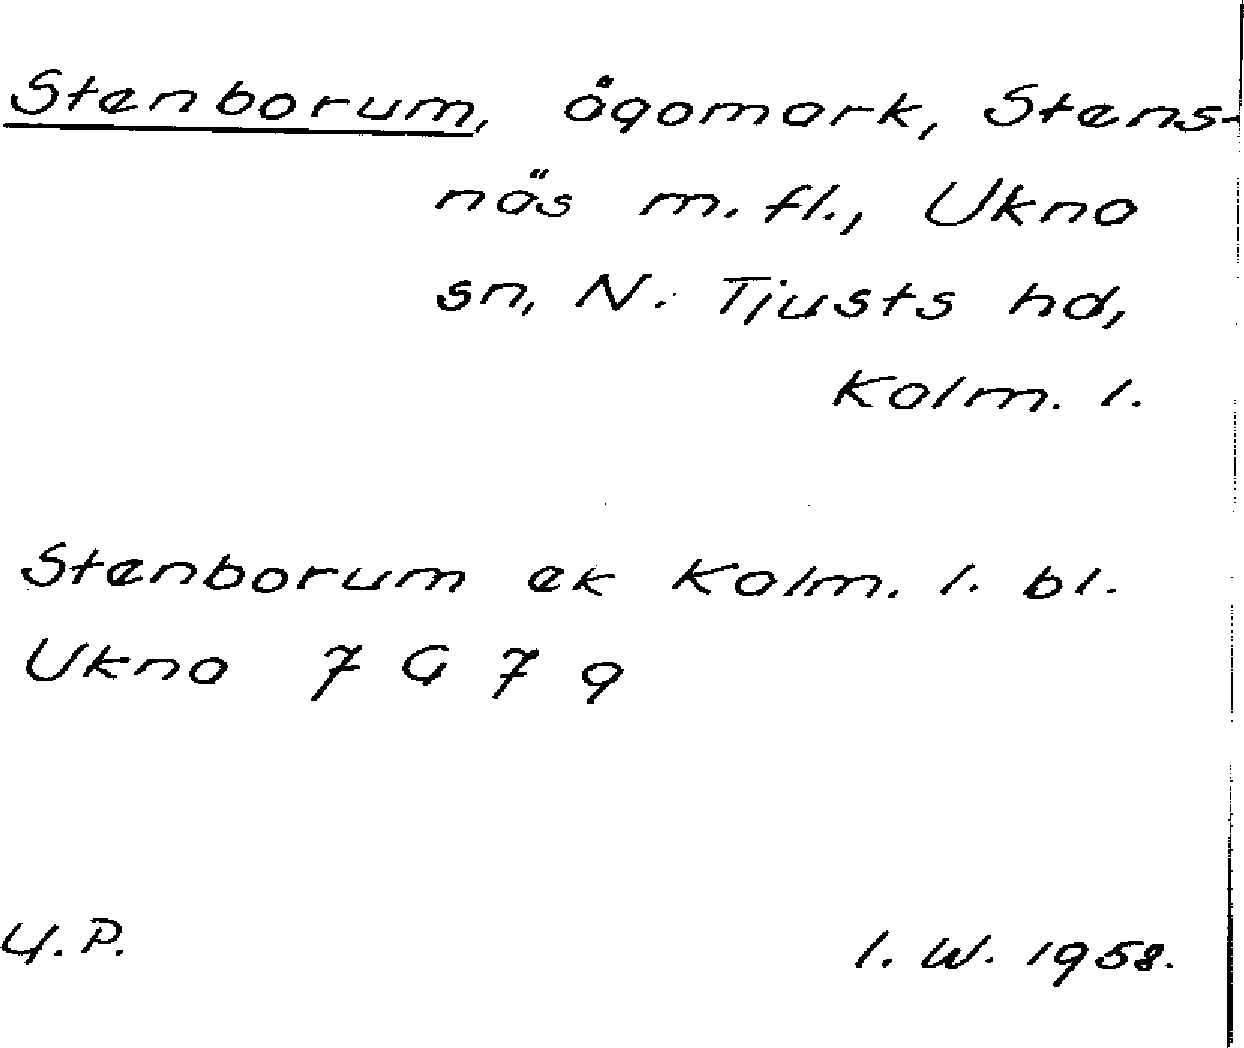 Stenborum, ägomark, Stens-
näs m.fl., Ukna
sn, N. Tjusts hd,
Kalm. l.
Stenborum ek Kalm. l. bl.
Ukna 7 G 7 q
U.P.
I. W. 1958.